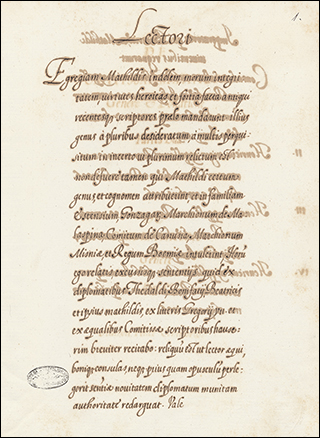 Lectori
1.
Egregiam Mathildis indolem morum integri
tatem, virtutes heroitas et fortia facta antiqui
recentesq; scriptores prelo mandarunt. illius
genus à pluribus desideratum, à multis perqui-
situm in incerto ut plurimum relictum est
non defuere tamen qui Mathildi certum
genus, et cognomen attribuerint et in familiam
Estensium Gonzagar. Marchionum de Ma-
laspina Comitum de Canusia Marchionum
et Regum Boemiæ insuleint.
relatis quid ex
diplomatibus Thedaldi, Bonifacij Beatricis
et ipsius Mathildis, ex literis Gregorij et
ex æqualibus Comitissæ scriptoribus hause-
rim breviter recitabo: reliquum est ut lector æqui,
boniq; consulas, neq; prius quam opusculum perle-
gerit sententiæ novitatem diplomatum munitam
authoritate redarguat. Vale